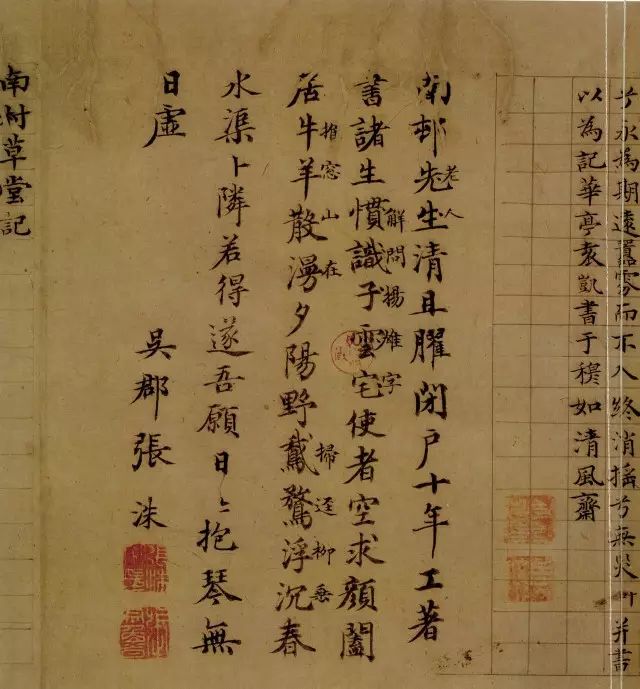 兮永為期遠囂雰而不入終消搖兮無央并書
以為記華亭袁凱書于穆如清風齋
南邨先生清且臞閉户十年工著
老人
書諸生慣識子雲宅使者空求顏闔
解問楊雄字
居牛羊散漫夕陽野鳧鶩浮沉春
推窓山在
掃逕柳垂
水渠卜隣若得遂吾願日〻抱琴無
日虛
吳郡張洙
南村草堂記